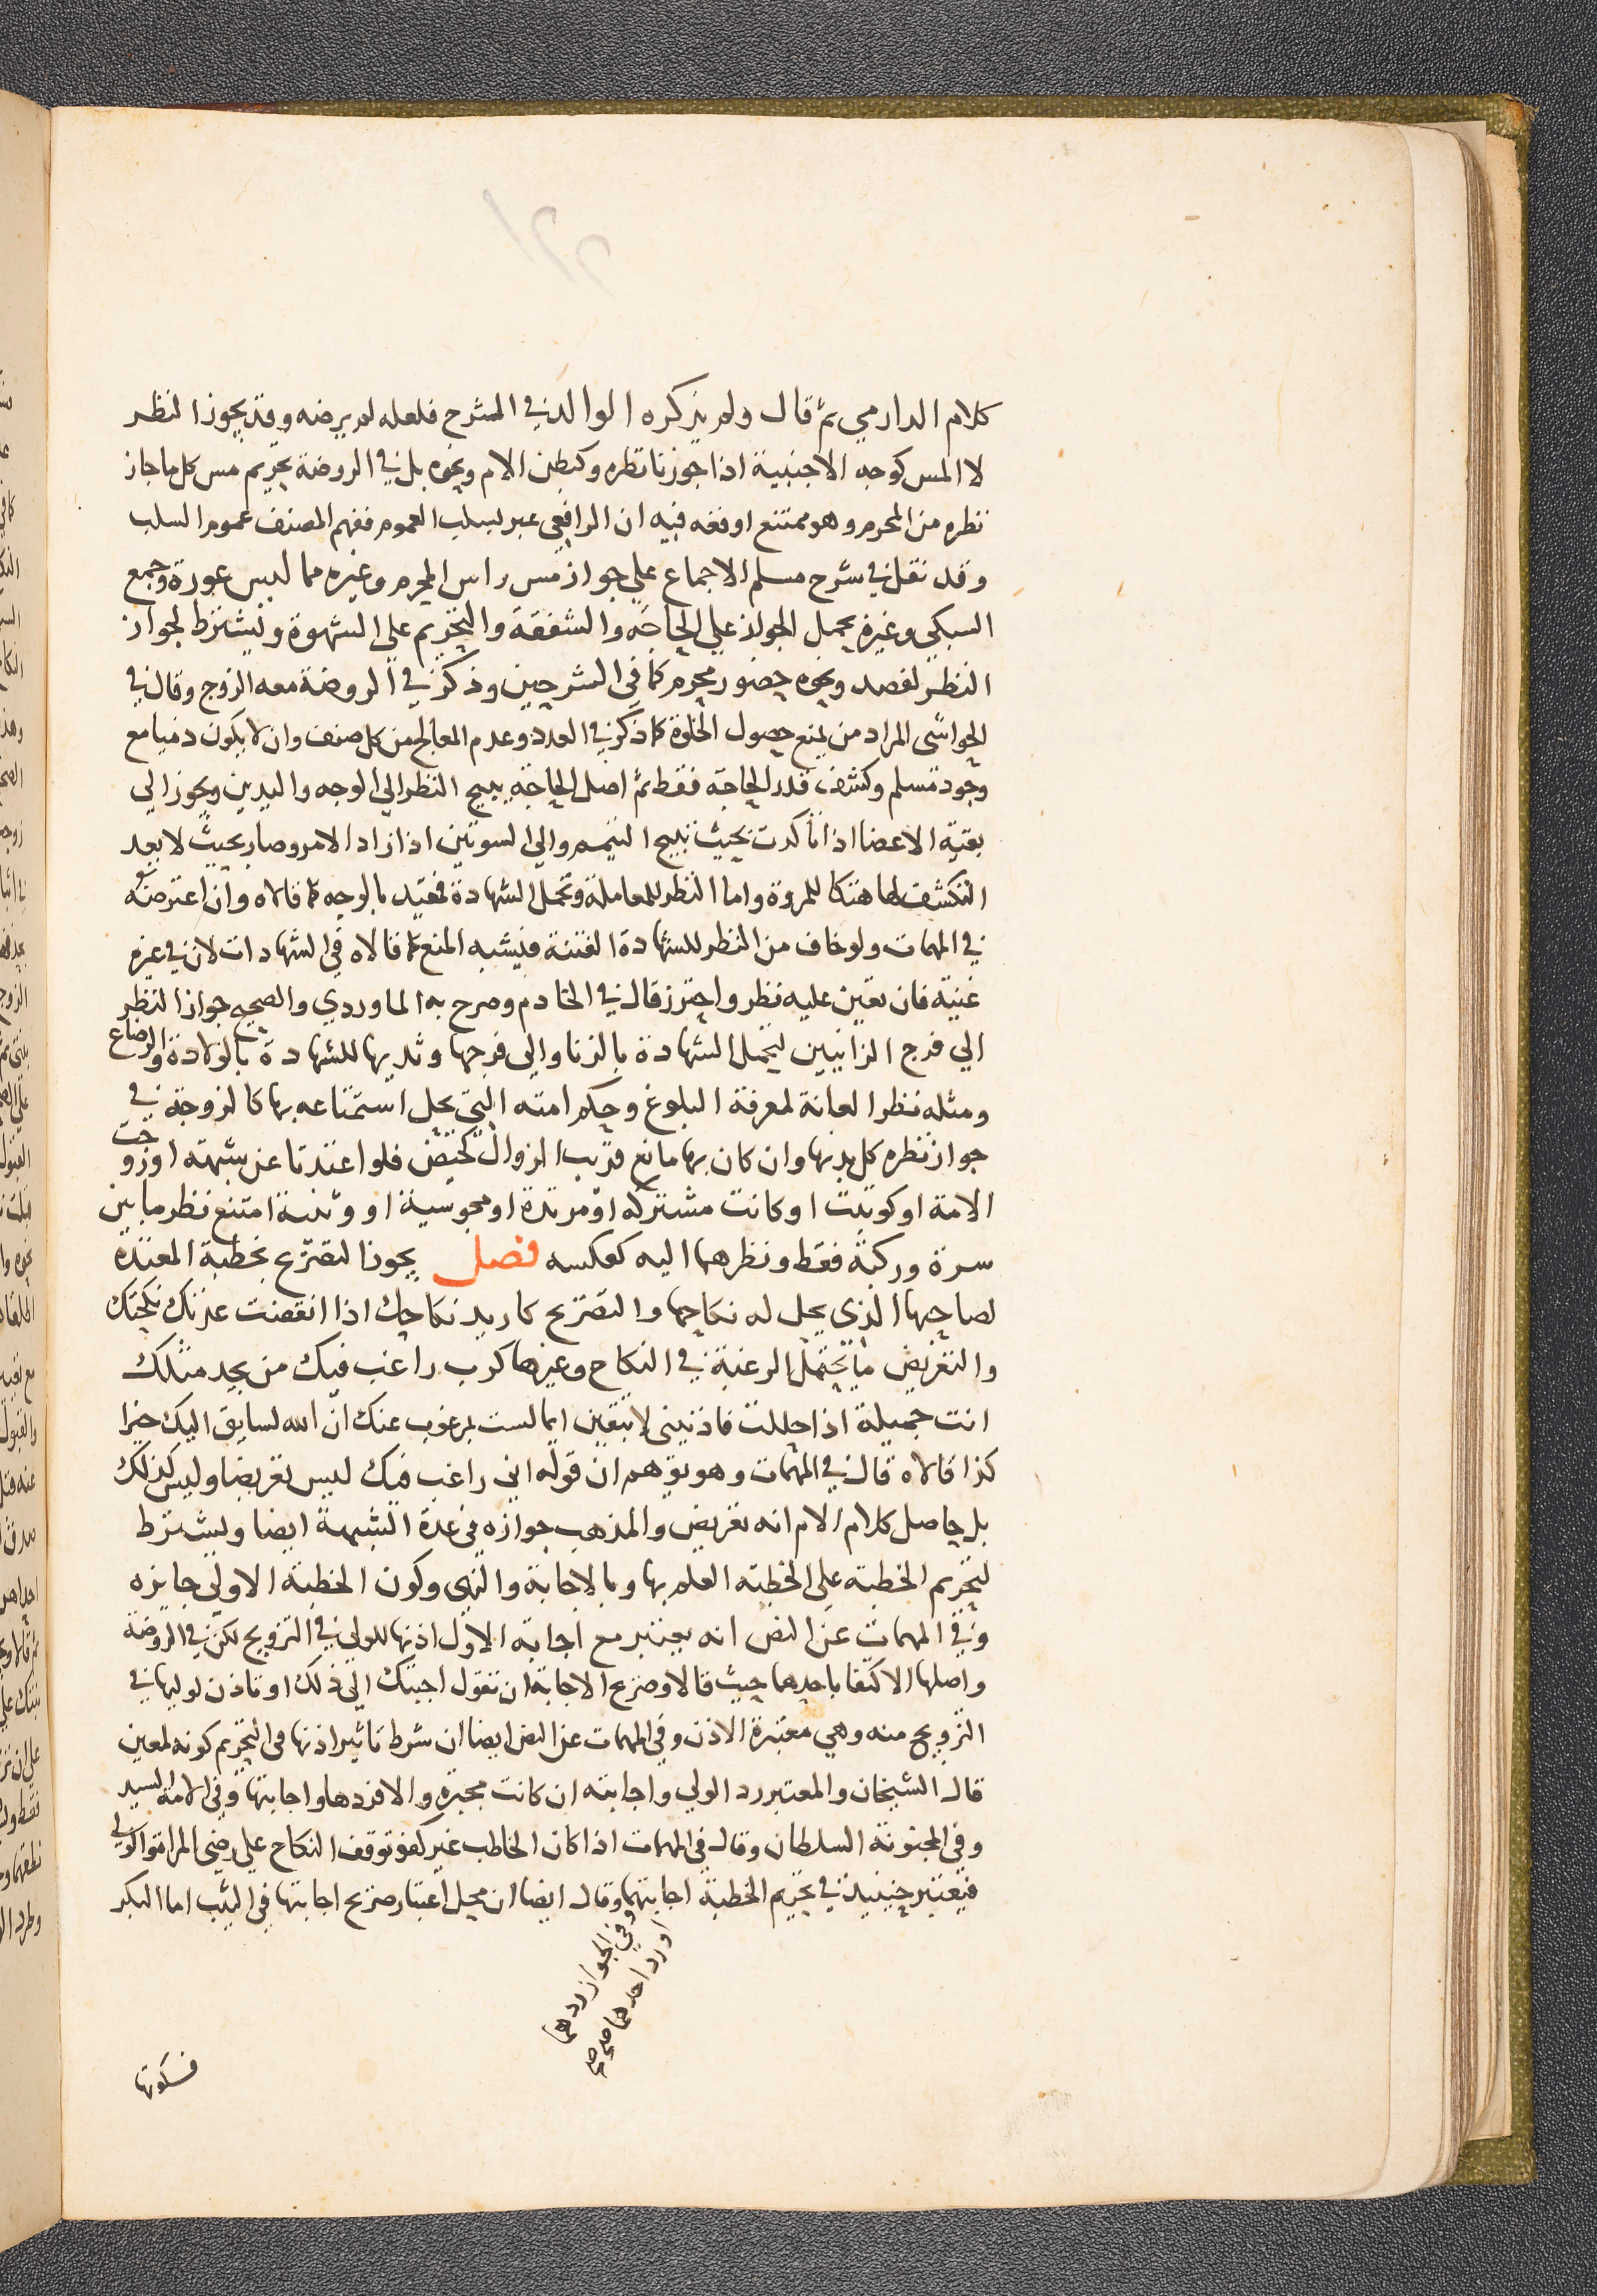 كلام الدارمي ثم قال ولم يذكره الوالد في الشرح فلعله لم يرضه وقد يجوز النظر
لا المس كوجه الاجنبية اذا جوزنا نظره وكبطن الام ونحوه بل في الروضة تحريم مس كل ما جاز
نظره من المحرم وهو ممتنع اوقعه فيه ان الرافعي عبر بسلب العموم ففهم المصنف عموم السلب
وقد نقل في شرح مسلم الاجماع علي جواز مس راس المحرم وغيره مما ليس عورة وجمع
السبكي وغيره بحمل الجواز علي الحاجة والشفقة والتحريم علي الشهوة ويشترط لجواز
النظر لفصد ونحوه حضور محرم كما في الشرحين وذكر في الروضة معه الزوج وقال في
الحواشي المراد من يمنع حصول الخلوة كما ذكر في العدد وعدم المعالج من كل صنف وان لا يكون ذميا مع
وجود مسلم وكشف قدر الحاجة فقط ثم اصل الحاجة يبيح النظر الي الوجه واليدين ويجوز الي
بقية الاعضا اذا تاكدت بحيث تبيح التيمم والي السوتين اذا زاد الامر وصار بحيث لا يعد
التكشف لها هتكا للمروة واما النظر للمعاملة وتحمل الشهادة فمقيد بالوجه كما قالاه وان اعترضه
في المهمات ولو خاف من النظر للشهادة الفتنة فيشبه المنع كما قالاه في الشهادات لان في غيره
غنية فان تعين عليه نظر واحترز قال في الخادم وصرح به الماوردي والصحيح جواز النظر
الي فرج الزانيين لتحمل الشهادة بالزنا والي فرجها وثديها للشهادة بالولادة والرضاع
ومثله نظر العانة لمعرفة البلوغ وحكم امته التي يحل استمتاعه بها كالزوجة في
جواز نظره كل بدنها وان كان بها مانع قريب الزوال كحيض فلو اعتدتا عن شبهة او زوجت
الامة او كوتبت او كانت مشتركة او مرتدة او مجوسية او وثنية امتنع نظر ما بين
سرة وركبة فقط ونظرهما اليه كعكسه فصل يجوز التصريح بخطبة المعتدة
لصاحبها الذي يحل له نكاحها والتصريح كاريد نكاحك اذا انقضت عدتك نكحتك
والتعريض ما يحتمل الرغبة في النكاح وغيرها كرب راغب فيك من يجد مثلك
انت جميلة اذا حللت فاذنيني لا تبقين ايما لست بمرغوب عنك ان الله لسايق اليك خيرا
كذا قالاه قال في المهمات وهو يوهم ان قوله اني راغب فيك ليس تعريضا وليس كذلك
بل حاصل كلام الام انه تعريض والمذهب جوازه في عدة الشبهة ايضا ويشترط
لتحريم الخطبة علي الخطبة العلم بها وبالاجابة والنهي وكون الخطبة الاولي جايزه
وفي المهمات عن النص انه يعتبر مع اجابة الاول اذنها للولي في التزويج لكن في الروضة
واصلها الاكتفا باحدهما حيث قالا وصرح الاجابة ان تقول اجبتك الي ذلك او تاذن لوليها في
التزويج منه وهي معتبرة الاذن وفي المهمات عن النص ايضا ان شرط تاثير اذنها في التحريم كونه لمعين
قال الشيخان والمعتبر رد الولي واجابته ان كانت مجبرة والا فردها واجابتها وفي الامة السيد
وفي المجنونة السلطان وقال في المهمات اذا كان الخاطب غير كفو توقف النكاح علي رضي المراة والولي
فيعتبر حينيذ في تحريم الخطبة اجابتهما وقال ايضا ان محل اعتبار صريح اجابتها في الثيب اما البكر
وفي الجواز ردهما
او رد احدهما صح
فسكوتها